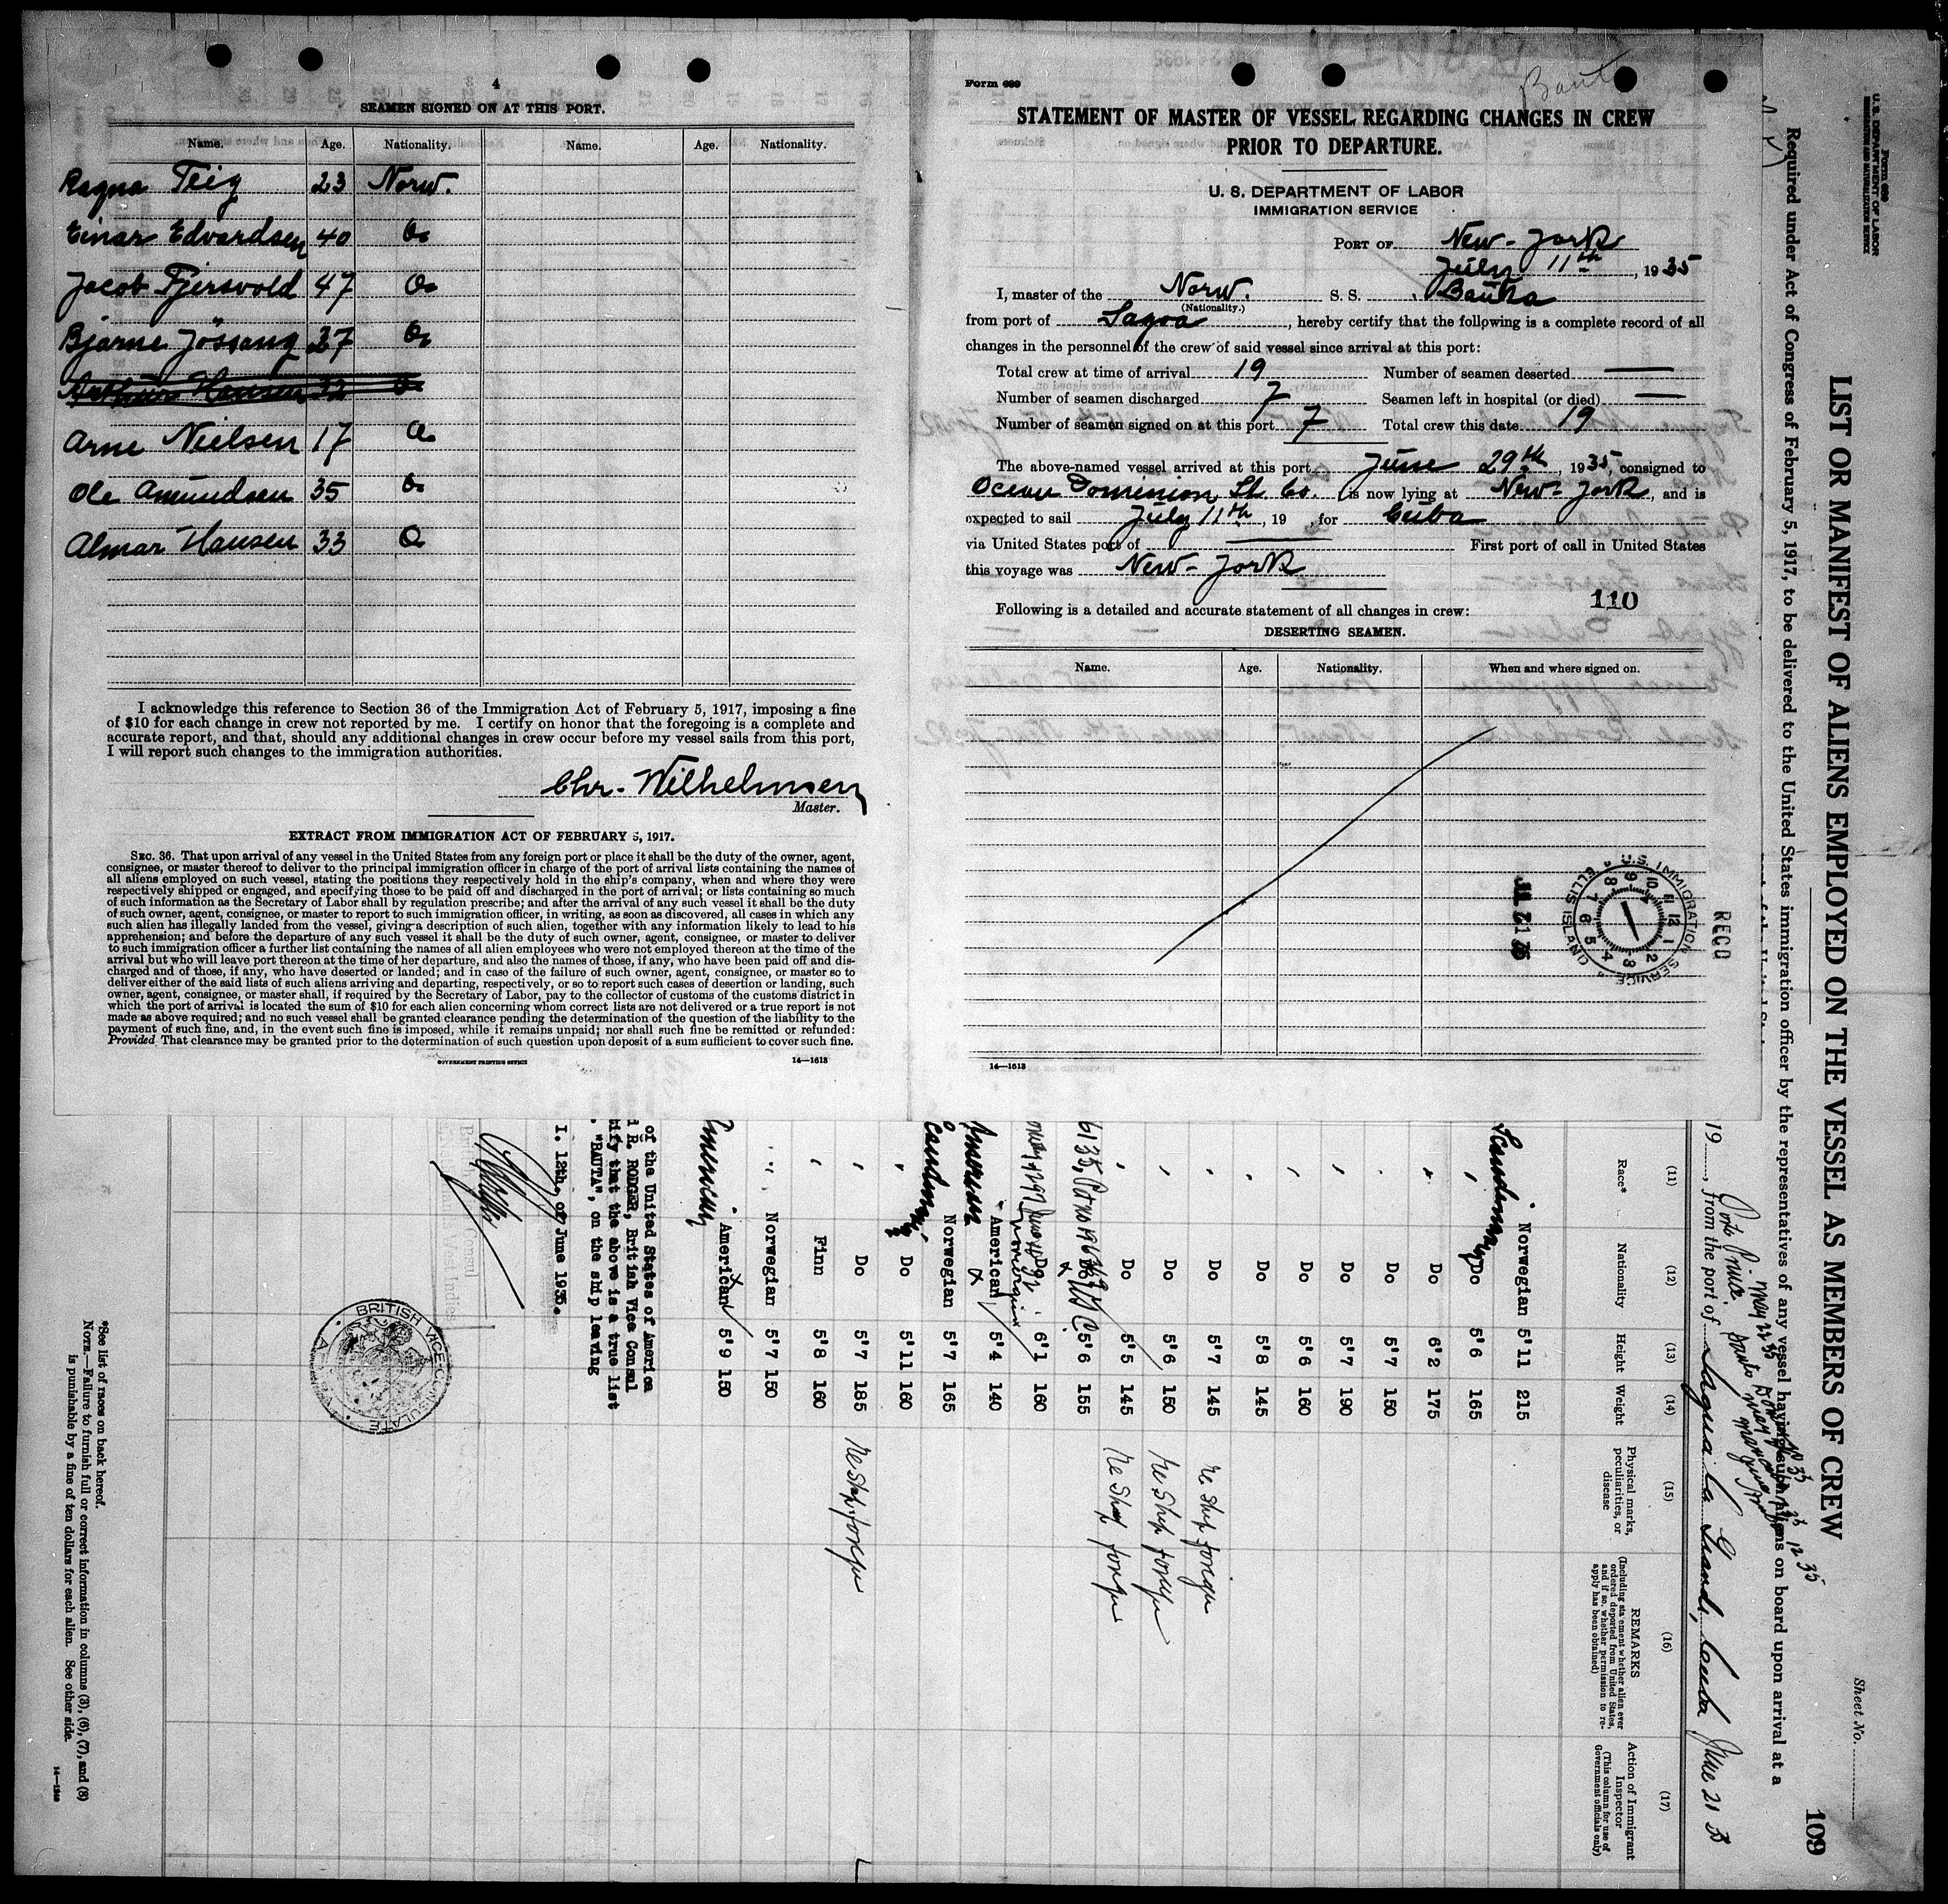 4
SEAMEN SIGNED ON AT THIS PORT.
Name. Age. Nationality. Name. Age. Nationality.
Ragna Teig 23 Norw.
Einar Edvardsen 40 Do
Jacob Fjersvold 47 Do
Bjarne Jössang 27 Do
Arthur Hansen 32 Do
Arne Nielsen 17 Do
Ole Amundsen 35 Do
Almar Hansen 33 Do
I acknowledge this reference to Section 36 of the Immigration Act of February 5, 1917, imposing a fine
of $10 for each change in crew not reported by me. I certify on honor that the foregoing is a complete and
accurate report, and that, should any additional changes in crew occur before my vessel sails from this port,
I will report such changes to the immigration authorities.
Chr. Wilhelmsen
Master.
EXTRACT FROM IMMIGRATION ACT OF FEBRUARY 5, 1917.
SEC. 36. That upon arrival of any vessel in the United States from any foreign port or place it shall be the duty of the owner, agent,
consignee, or master thereof to deliver to the principal immigration officer in charge of the port of arrival lists containing the names of
all aliens employed on such vessel, stating the positions they respectively hold in the ship's company, when and where they were
respectively shipped or engaged, and specifying those to be paid off and discharged in the port of arrival; or lists containing so much
of such information as the Secretary of Labor shall by regulation prescribe; and after the arrival of any such vessel it shall be the duty
of such owner, agent, consignee, or master to report to such immigration officer, in writing, as soon as discovered, all cases in which any
such alien has illegally landed from the vessel, giving a description of such alien, together with any information likely to lead to his
apprehension; and before the departure of any such vessel it shall be the duty of such owner, agent, consignee, or master to deliver
to such immigration officer a further list containing the names of all alien employees who were not employed thereon at the time of the
arrival but who will leave port thereon at the time of her departure, and also the names of those, if any, who have been paid off and dis-
charged and of those, if any, who have deserted or landed; and in case of the failure of such owner, agent, consignee, or master so to
deliver either of the said lists of such aliens arriving and departing, respectively, or so to report such cases of desertion or landing, such
owner, agent, consignee, or master shall, if required by the Secretary of Labor, pay to the collector of customs of the customs district in
which the port of arrival is located the sum of $10 for each alien concerning whom correct lists are not delivered or a true report is not
made as above required; and no such vessel shall be granted clearance pending the determination of the question of the liability to the
payment of such fine, and, in the event such fine is imposed, while it remains unpaid; nor shall such fine be remitted or refunded:
Provided That clearance may be granted prior to the determination of such question upon deposit of a sum sufficient to cover such fine.
GOVERNMENT PRINTING OFFICE 14—1613
Form 689
STATEMENT OF MASTER OF VESSEL REGARDING CHANGES IN CREW
PRIOR TO DEPARTURE.
U. S. DEPARTMENT OF LABOR
IMMIGRATION SERVICE
PORT OF New-York
July 11th, 1935
I, master of the Norw. S. S. Bauta
(Nationality.)
from port of Sagoa, hereby certify that the following is a complete record of all
changes in the personnel of the crew of said vessel since arrival at this port:
Total crew at time of arrival 19 Number of seamen deserted —
Number of seamen discharged 7 Seamen left in hospital (or died) —
Number of seamen signed on at this port 7 Total crew this date 19
The above-named vessel arrived at this port June 29th, 1935, consigned to
Ocean Dominion St. Co. is now lying at New-York, and is
expected to sail July 11th, 19 , for Cuba
via United States port of — First port of call in United States
this voyage was New-York
110
Following is a detailed and accurate statement of all changes in crew:
DESERTING SEAMEN.
Name. Age. Nationality. When and where signed on.
14—1613
RECD
U.S. IMMIGRATION SERVICE ELLIS ISLAND
Form 689
U. S. DEPARTMENT OF LABOR
IMMIGRATION AND NATURALIZATION SERVICE
Sheet No.
109
LIST OR MANIFEST OF ALIENS EMPLOYED ON THE VESSEL AS MEMBERS OF CREW
Required under Act of Congress of February 5, 1917, to be delivered to the United States immigration officer by the representatives of any vessel having such aliens on board upon arrival at a
19 , from the port of Sagua La Grande, Cuba June 21 35
(11) (12) (13) (14) (15) (16) (17)
Race* Nationality Height Weight Physical marks, peculiarities, or disease REMARKS (Including statement whether alien ever ordered deported from United States, and if so, whether permission to re-apply has been obtained) Action of Immigrant Inspector (This column for use of Government officials only)
Norwegian 5'11 215
Do 5'6 165
Do 6'2 175
Do 5'7 150
Do 5'7 190
Do 5'6 160
Do 5'8 145
Do 5'7 145 Re Ship foreign
Do 5'6 150 Re Ship foreign
Do 5'5 145 Re Ship foreign
5'6 155
6'1 160
American American 5'4 140
Norwegian 5'7 165
Do 5'11 160
Do 5'7 185 Re Ship foreign
Finn 5'8 160
Norwegian 5'7 150
American American 5'9 150
of the United States of America
R. RODGER, British Vice Consul
tify that the above is a true list
"BAUTA", on the ship leaving
I. 12th, of June 1935.
BRITISH VICE-CONSULATE
*See list of races on back hereof.
NOTE.—Failure to furnish full or correct information in columns (3), (6), (7), and (8)
is punishable by a fine of ten dollars for each alien. See other side.